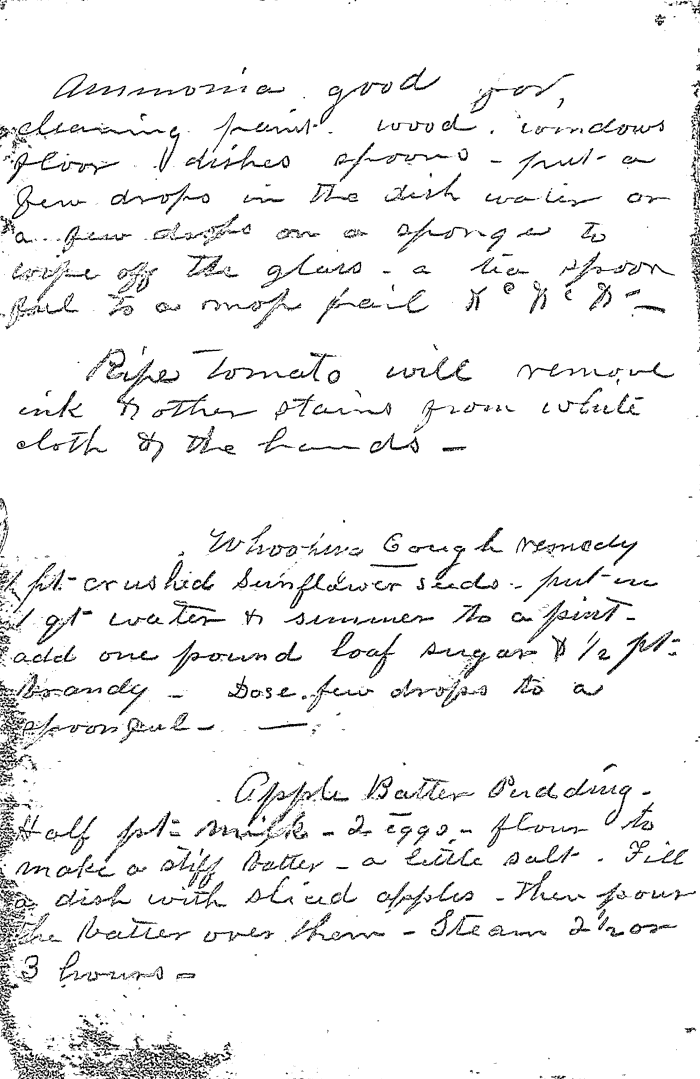 Ammonia good for,
cleaning paint. wood. windows
floor dishes spoons - put a
few drops in the dish water or
a few drops on a sponge to
wipe off the glass - a tea spoon
ful to a mop pail &c &c &c —
Ripe Tomato will remove
ink & other stains from white
cloth & the hands —
Whooping Cough remedy
1 pt crushed sunflower seeds - put in
1 qt water & simmer to a pint -
add one pound loaf sugar & 1/2 pt-
Brandy - Dose. few drops to a
spoonful - —
Apple Batter Pudding -
Half pt- milk - 2 eggs - flour to
make a stiff batter - a little salt. Fill
a dish with sliced apples - then pour
the batter over them - Steam 2 1/2 or
3 hours -